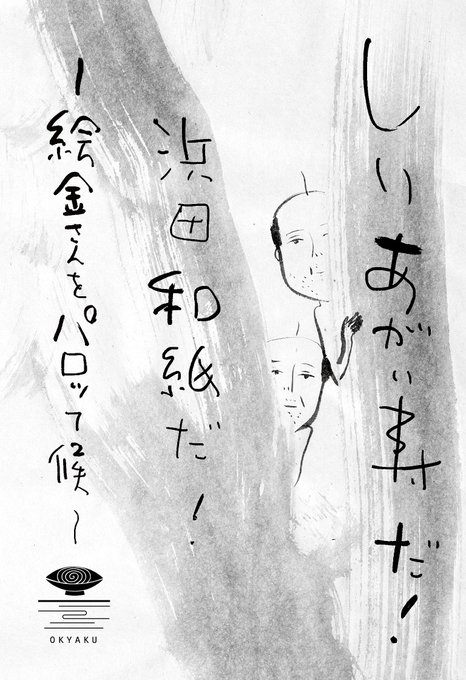 しりあがり寿だ！
浜田和紙だ！
〜絵金さんをパロッて候〜
OKYAKU